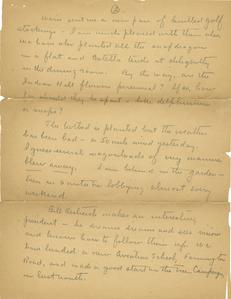 (2)
sent me a new pair of knitted golf
stockings - I am much pleased with them also
we have also planted all the snapdragons
in a flat and Estella tends it diligently
in the dining room. By the way, are the
Indian Hill flowers perennial? If so, how
far should they be apart - like delphiniums
or snaps?
The is planted but the weather
has been bad - a 50 mile wind yesterday.
I guess several wagonloads of my manure
blew away. I am behind in the garden -
been in lobbying almost every
weekend.
Bill makes an interesting
president - he dreams dreams and sees visions
and knows how to follow them up. Is a
Road, and made a good start on the Campaign
in last month.